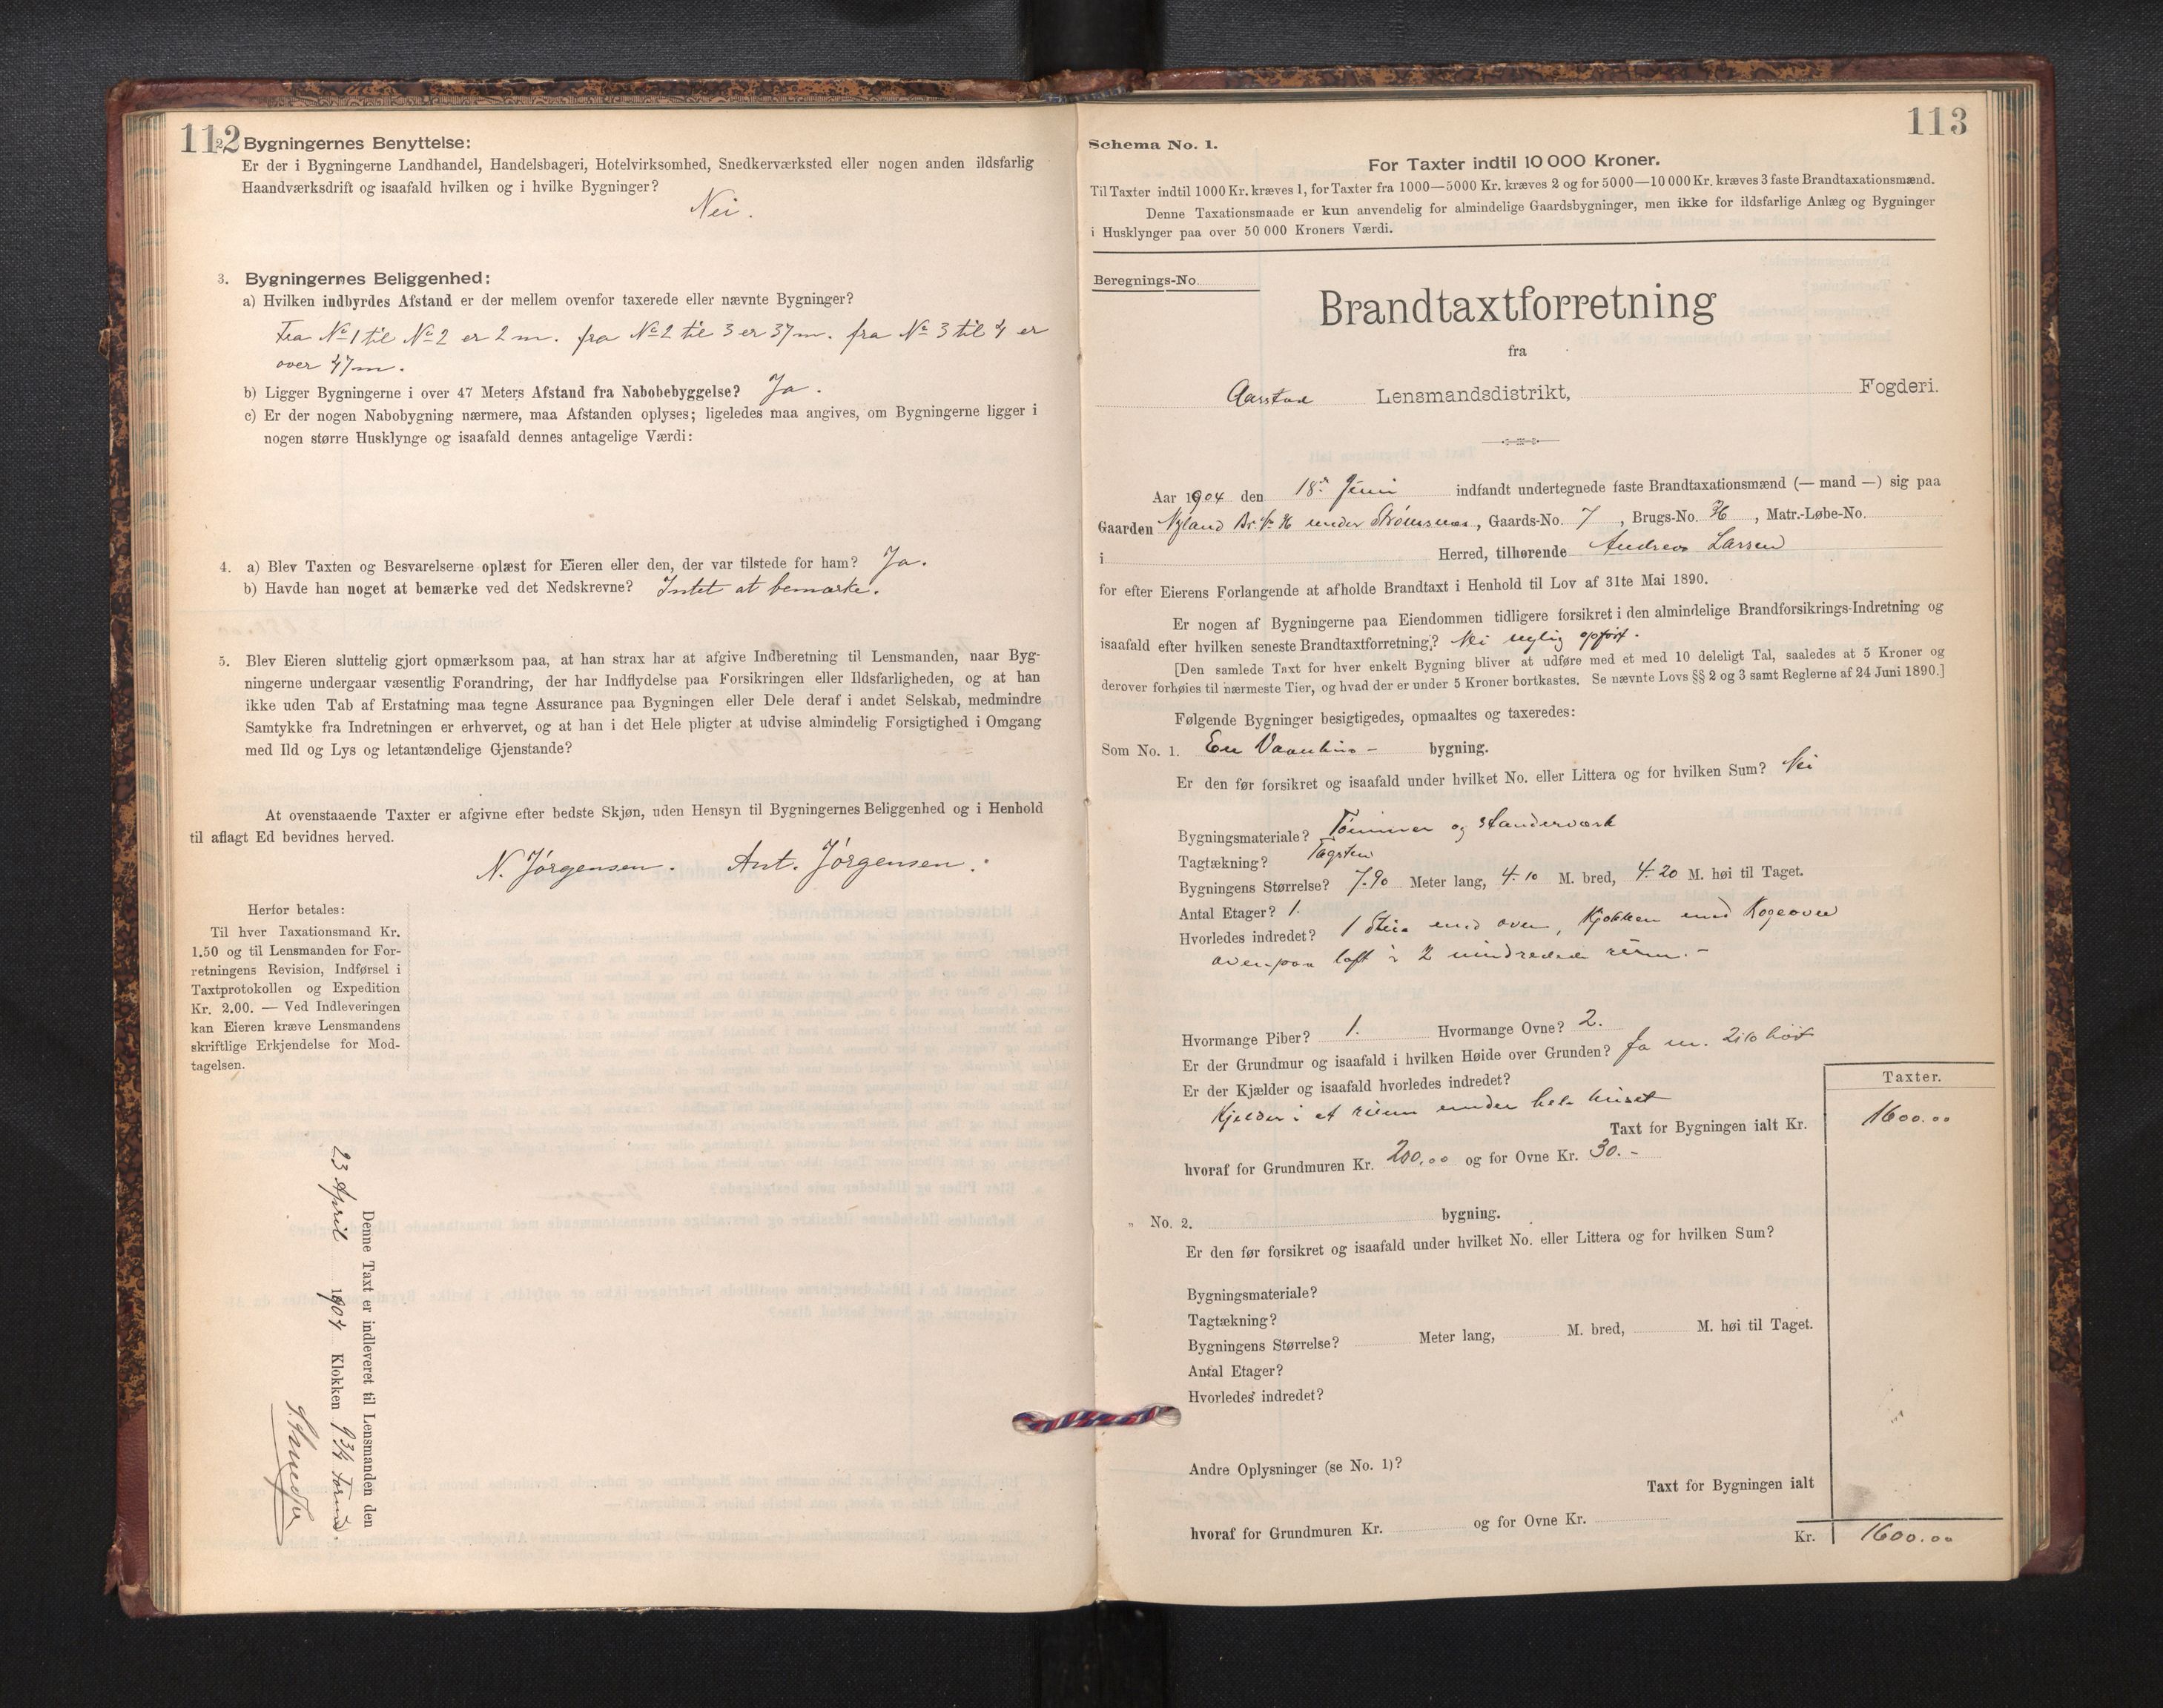 112
2. Bygningernes Benyttelse:
Er der i Bygningerne Landhandel, Handelsbageri, Hotelvirksomhed, Snedkerværksted eller nogen anden ildsfarlig
Haandværksdrift og isaafald hvilken og i hvilke Bygninger?
Nei.
3. Bygningernes Beliggenhed:
a) Hvilken indbyrdes Afstand er der mellem ovenfor taxerede eller nævnte Bygninger?
Fra No 1 til No 2 er 2 m. fra No 2 til 3 er 37 m. fra No 3 til 4 er
over 47 m.
b) Ligger Bygningerne i over 47 Meters Afstand fra Nabobebyggelse? Ja.
c) Er der nogen Nabobygning nærmere, maa Afstanden oplyses; ligeledes maa angives, om Bygningerne ligger i
nogen større Husklynge og isaafald dennes antagelige Værdi:
4. a) Blev Taxten og Besvarelserne oplæst for Eieren eller den, der var tilstede for ham? Ja.
b) Havde han noget at bemærke ved det Nedskrevne? Intet at bemærke.
5. Blev Eieren sluttelig gjort opmærksom paa, at han strax har at afgive Indberetning til Lensmanden, naar Byg-
ningerne undergaar væsentlig Forandring, der har Indflydelse paa Forsikringen eller Ildsfarligheden, og at han
ikke uden Tab af Erstatning maa tegne Assurance paa Bygningen eller Dele deraf i andet Selskab, medmindre
Samtykke fra Indretningen er erhvervet, og at han i det Hele pligter at udvise almindelig Forsigtighed i Omgang
med Ild og Lys og letantændelige Gjenstande?
At ovenstaaende Taxter er afgivne efter bedste Skjøn, uden Hensyn til Bygningernes Beliggenhed og i Henhold
til aflagt Ed bevidnes herved.
N. Jörgensen. Ant. Jörgensen.
Herfor betales:
Til hver Taxationsmand Kr.
1.50 og til Lensmanden for For-
retningens Revision, Indførsel i
Taxtprotokollen og Expedition
Kr. 2.00. — Ved Indleveringen
kan Eieren kræve Lensmandens
skriftlige Erkjendelse for Mod-
tagelsen.
Denne Taxt er indleveret til Lensmanden den
23 April 1904 Klokken 9 3/4 Form.
113
Schema No. 1.
For Taxter indtil 10 000 Kroner.
Til Taxter indtil 1000 Kr. kræves 1, for Taxter fra 1000—5000 Kr. kræves 2 og for 5000—10 000 Kr. kræves 3 faste Brandtaxationsmænd.
Denne Taxationsmaade er kun anvendelig for almindelige Gaardsbygninger, men ikke for ildsfarlige Anlæg og Bygninger
i Husklynger paa over 50 000 Kroners Værdi.
Beregnings-No
Brandtaxtforretning
fra
Aarstad Lensmandsdistrikt, Fogderi.
Aar 1904 den 18de Juni indfandt undertegnede faste Brandtaxationsmænd (— mand —) sig paa
Gaarden Nyland Br. No 36 under Strømsnes, Gaards-No. 7, Brugs-No. 36, Matr.-Løbe-No.
i Herred, tilhørende Andreas Larsen
for efter Eierens Forlangende at afholde Brandtaxt i Henhold til Lov af 31te Mai 1890.
Er nogen af Bygningerne paa Eiendommen tidligere forsikret i den almindelige Brandforsikrings-Indretning og
isaafald efter hvilken seneste Brandtaxtforretning? Nei nylig opført.
[Den samlede Taxt for hver enkelt Bygning bliver at udføre med et med 10 deleligt Tal, saaledes at 5 Kroner og
derover forhøies til nærmeste Tier, og hvad der er under 5 Kroner bortkastes. Se nævnte Lovs §§ 2 og 3 samt Reglerne af 24 Juni 1890.]
Følgende Bygninger besigtigedes, opmaaltes og taxeredes:
Som No. 1. En Vaanhus- bygning.
Er den før forsikret og isaafald under hvilket No. eller Littera og for hvilken Sum? Nei
Bygningsmateriale? Tømmer og standerværk
Tagtækning? Tagsten
Bygningens Størrelse? 7.90 Meter lang, 4.10 M. bred, 4.20 M. høi til Taget.
Antal Etager? 1.
Hvorledes indredet? 1 Stue med oven, Kjøkken med Kogeovn
ovenpaa loft i 2 uindredede rum. -
Hvormange Piber? 1. Hvormange Ovne? 2.
Er der Grundmur og isaafald i hvilken Høide over Grunden? Ja m. 2,10 høit
Er der Kjælder og isaafald hvorledes indredet?
Kjelder i et rum under hele huset
Taxter.
Taxt for Bygningen ialt Kr. 1600.00
hvoraf for Grundmuren Kr. 200,00 og for Ovne Kr. 30. -
„ No. 2. bygning.
Er den før forsikret og isaafald under hvilket No. eller Littera og for hvilken Sum?
Bygningsmateriale?
Tagtækning?
Bygningens Størrelse? Meter lang, M. bred, M. høi til Taget.
Antal Etager?
Hvorledes indredet?
Andre Oplysninger (se No. 1)?
Taxt for Bygningen ialt
hvoraf for Grundmuren Kr. og for Ovne Kr.
Kr. 1600.00